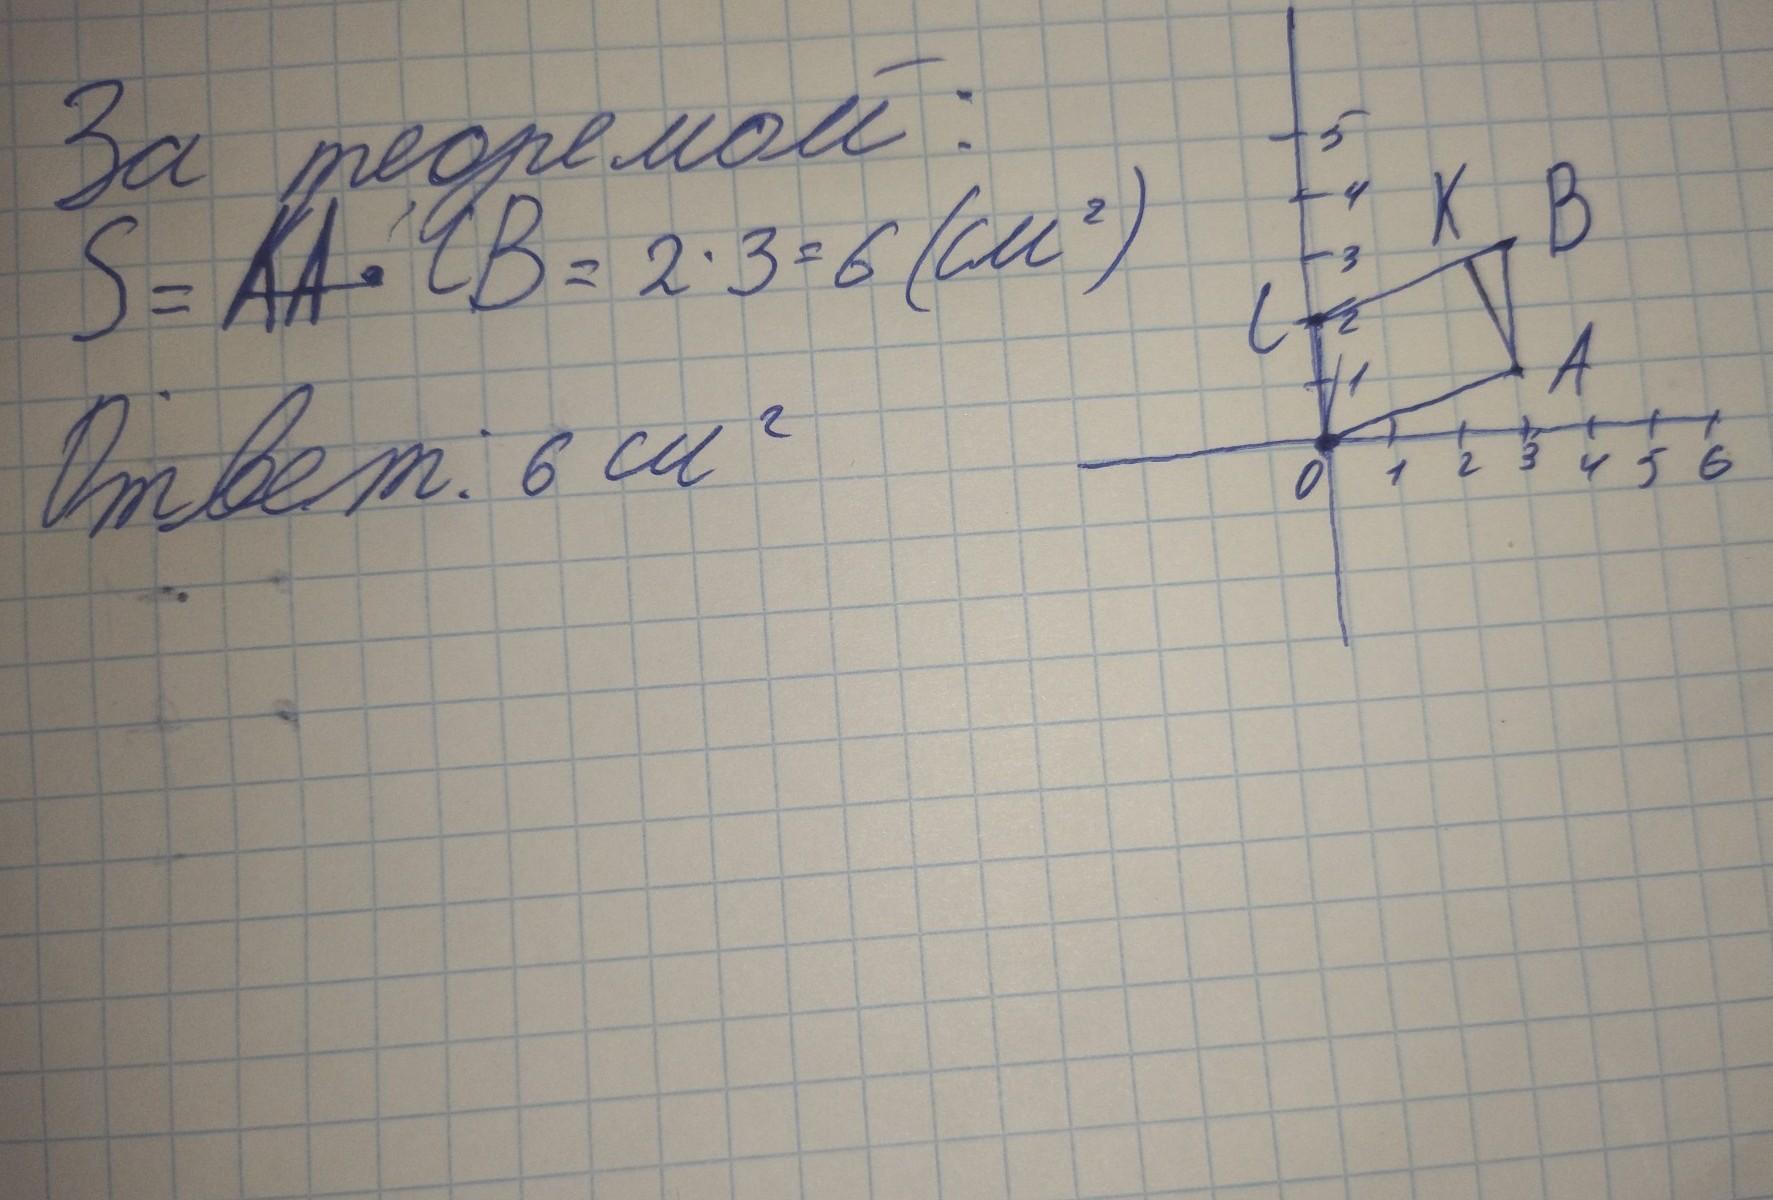 За теоремой:
S = KA · CB = 2 · 3 = 6 (см²)
Ответ: 6 см²
5
4
K B
3
C 2
1 A
0 1 2 3 4 5 6